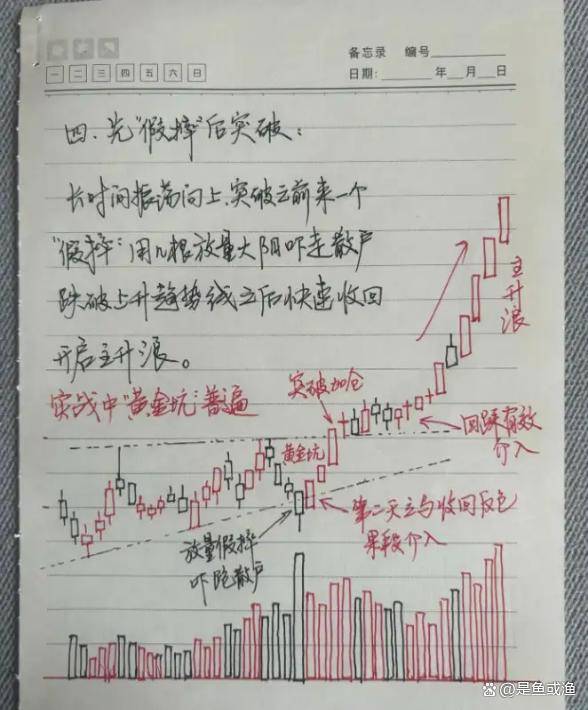 备忘录 编号
一 二 三 四 五 六 日
日期: 年 月 日
四、先“假摔”后突破:
长时间振荡向上,突破之前来一个
“假摔”用几根放量大阴吓走散户
跌破上升趋势线之后快速收回
开启主升浪。
实战中“黄金坑”普遍
突破加仓
主升浪
黄金坑
回踩有效
介入
第二天立马收回反包
果段介入
放量假摔
吓跑散户
@是鱼或渔